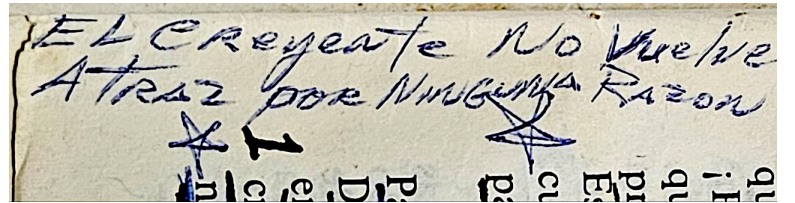 EL CReyeNTe No Vuelve
ATRaz poR NiNGuNA RazoN
1